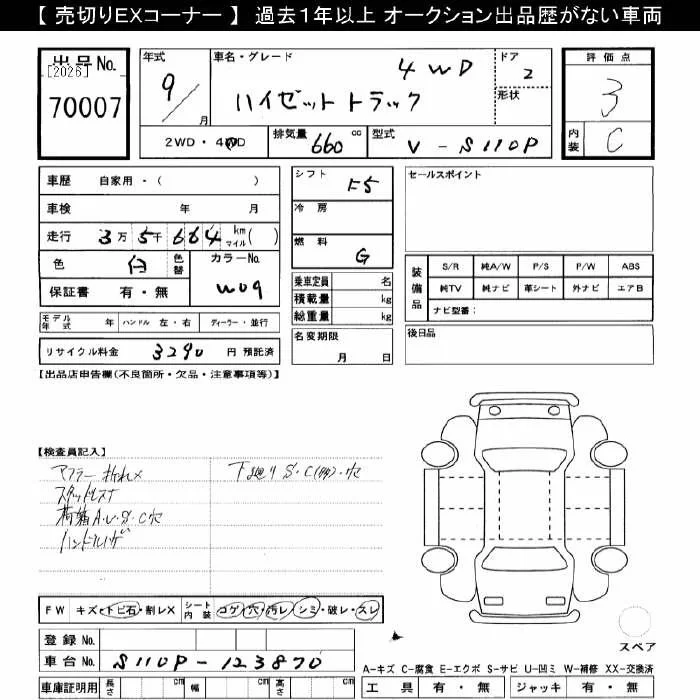 【 売切りEXコーナー 】 過去1年以上 オークション出品歴がない車両
出品No.
[2026]
70007
年式
9/
月
車名・グレード
4WD
ハイゼットトラック
ドア
2
形状
評価点
3
内装
C
2WD・4WD
排気量
660
cc
型式
V-S110P
車歴
自家用・( )
車検
年 月
走行
3万5千664
km
マイル
( )
色
白
色替
カラーNo.
W09
保証書
有・無
モデル年式
年
ハンドル
左・右
ディーラー・並行
リサイクル料金
3290
円 預託済
シフト
F5
冷房
燃料
G
乗車定員
名
積載量
kg
総重量
kg
名変期限
月 日
セールスポイント
装備品
S/R
純A/W
P/S
P/W
ABS
純TV
純ナビ
革シート
外ナビ
エアB
ナビ型番:
後日品
【出品店申告欄(不良箇所・欠品・注意事項等)】
【検査員記入】
マフラー折れ×
スタッドレス
荷箱A・U・S・C穴
ハンドルハゲ
下廻りS・C(多)・穴
FW
キズ・トビ石・割レX
シート内装
コゲ・穴・汚レ・シミ・破レ・スレ
登録No.
車台No.
S110P-123870
車庫証明用
長さ
cm
幅
cm
高さ
cm
スペア
A-キズ C-腐食 E-エクボ S-サビ U-凹ミ W-補修 XX-交換済
工具
有・無
ジャッキ
有・無